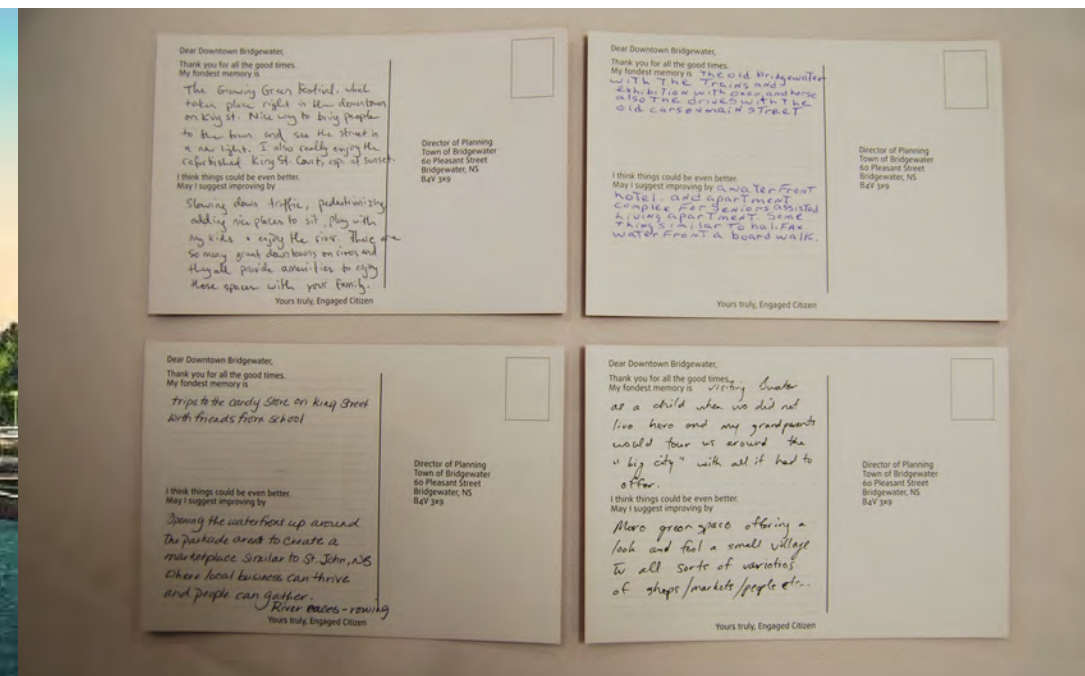 Dear Downtown Bridgewater,
Thank you for all the good times.
My fondest memory is
The Growing Green Festival, which
takes place right in the downtown
on King St. Nice way to bring people
to the town and see the street in
a new light. I also really enjoy the
refurbished King St. Court, esp. at sunset.
I think things could be even better.
May I suggest improving by
Slowing down traffic, pedestrianizing,
adding nice places to sit, play with
my kids + enjoy the river. There are
so many great downtowns on rivers and
they all provide amenities to enjoy
those spaces with your family.
Yours truly, Engaged Citizen
Director of Planning
Town of Bridgewater
60 Pleasant Street
Bridgewater, NS
B4V 3X9
Dear Downtown Bridgewater,
Thank you for all the good times.
My fondest memory is The old bridgewater
with The Trains and
exhibition with oxen and horse
also The drives with The
old cars on main STreeT
I think things could be even better.
May I suggest improving by a waTerFronT
hotel. and aparTmenT
complex For Seniors assisted
Living aparTmenT. Some
Things similar To haliFax
waterFront a board walk.
Yours truly, Engaged Citizen
Director of Planning
Town of Bridgewater
60 Pleasant Street
Bridgewater, NS
B4V 3X9
Dear Downtown Bridgewater,
Thank you for all the good times.
My fondest memory is
trips to the candy store on King Street
with friends from school
I think things could be even better.
May I suggest improving by
Opening the waterfront up around
the parkade area to create a
marketplace similar to St. John, NB
where local business can thrive
and people can gather.
River races - rowing
Yours truly, Engaged Citizen
Director of Planning
Town of Bridgewater
60 Pleasant Street
Bridgewater, NS
B4V 3X9
Dear Downtown Bridgewater,
Thank you for all the good times.
My fondest memory is Visiting Bwater
as a child when we did not
live here and my grandparents
would tour us around the
"big city" with all it had to
offer.
I think things could be even better.
May I suggest improving by
More green space offering a
look and feel a small village
to all sorts of varieties
of shops/markets/people etc..
Yours truly, Engaged Citizen
Director of Planning
Town of Bridgewater
60 Pleasant Street
Bridgewater, NS
B4V 3X9